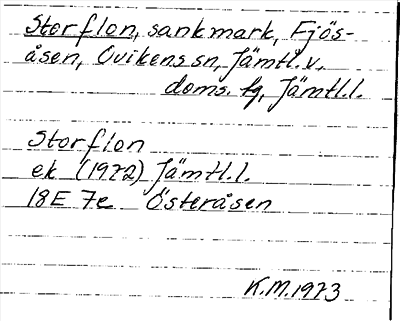 Storflon, sankmark, Fjös-
åsen, Ovikens sn, Jämtl. v.
doms. tg, Jämtl. l.
Storflon
ek (1972) Jämtl. l.
18E 7e Österåsen
K.M. 1973